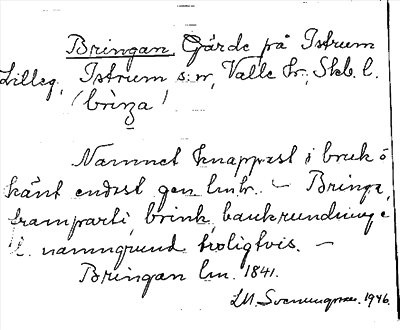 Bringan, Gärde på Istrum
Lilleg, Istrum s:n, Valle hr, Skb. l.
(briŋa)
Namnet knappast i bruk o
känt endast gen lmhr. – Bringa,
framparti, brink, backrundning e
i namngrund troligtvis. –
Bringan lm. 1841.
1946.